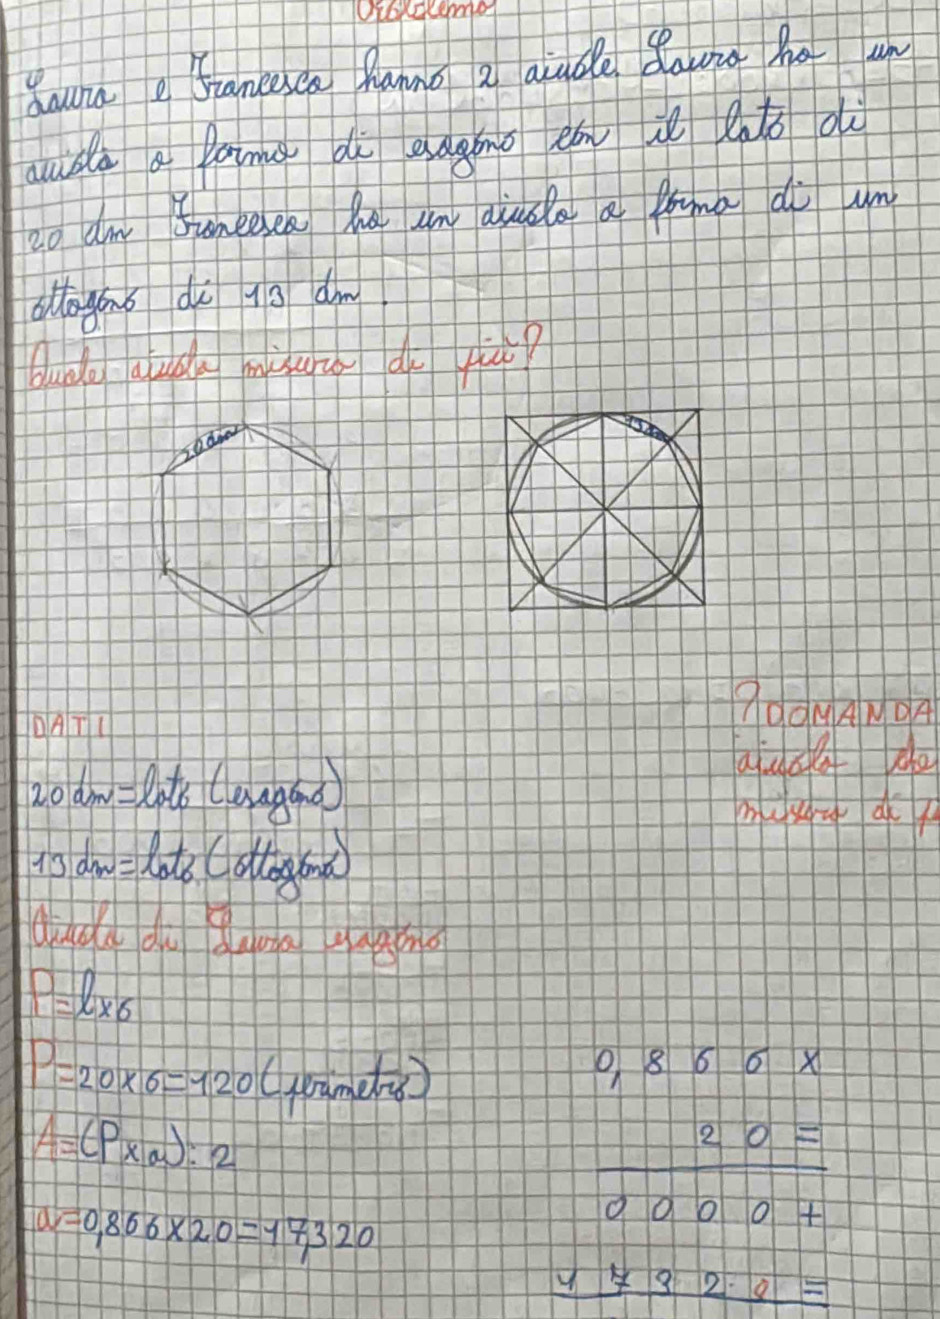 Problema
Laura e Francesca hanno 2 aiuole. Laura ha un
auiola a forma di esagono con il lato di
20 dm Francesca ha un aiuola a forma di un
ottagono di 13 dm.
Quale aiuola misura di più?
20dm
13dm
DATI
?DOMANDA
20 dm=lato (esagono)
aiuola che
misura di
13 dm=lato (ottagono)
Aiuola di Laura esagono
P=lx6
P=20x6=120(perimetro)
A=(Pxa):2
a=0,866x20=17,320
0,866x
20=
0000+
1732.0=